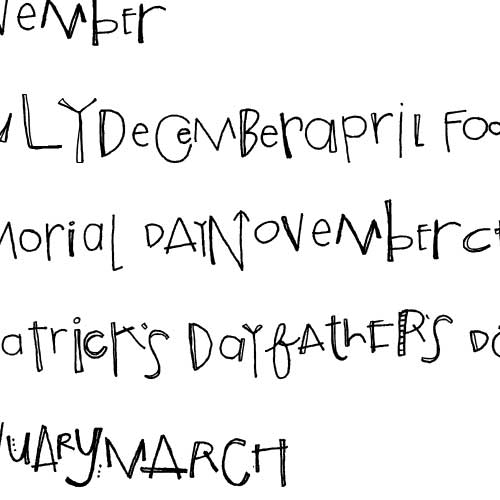 vember
uLYDeceMBerapril Foo
morial DAYNovemberc
atrick's DayfatHer's Da
uaryMARCH